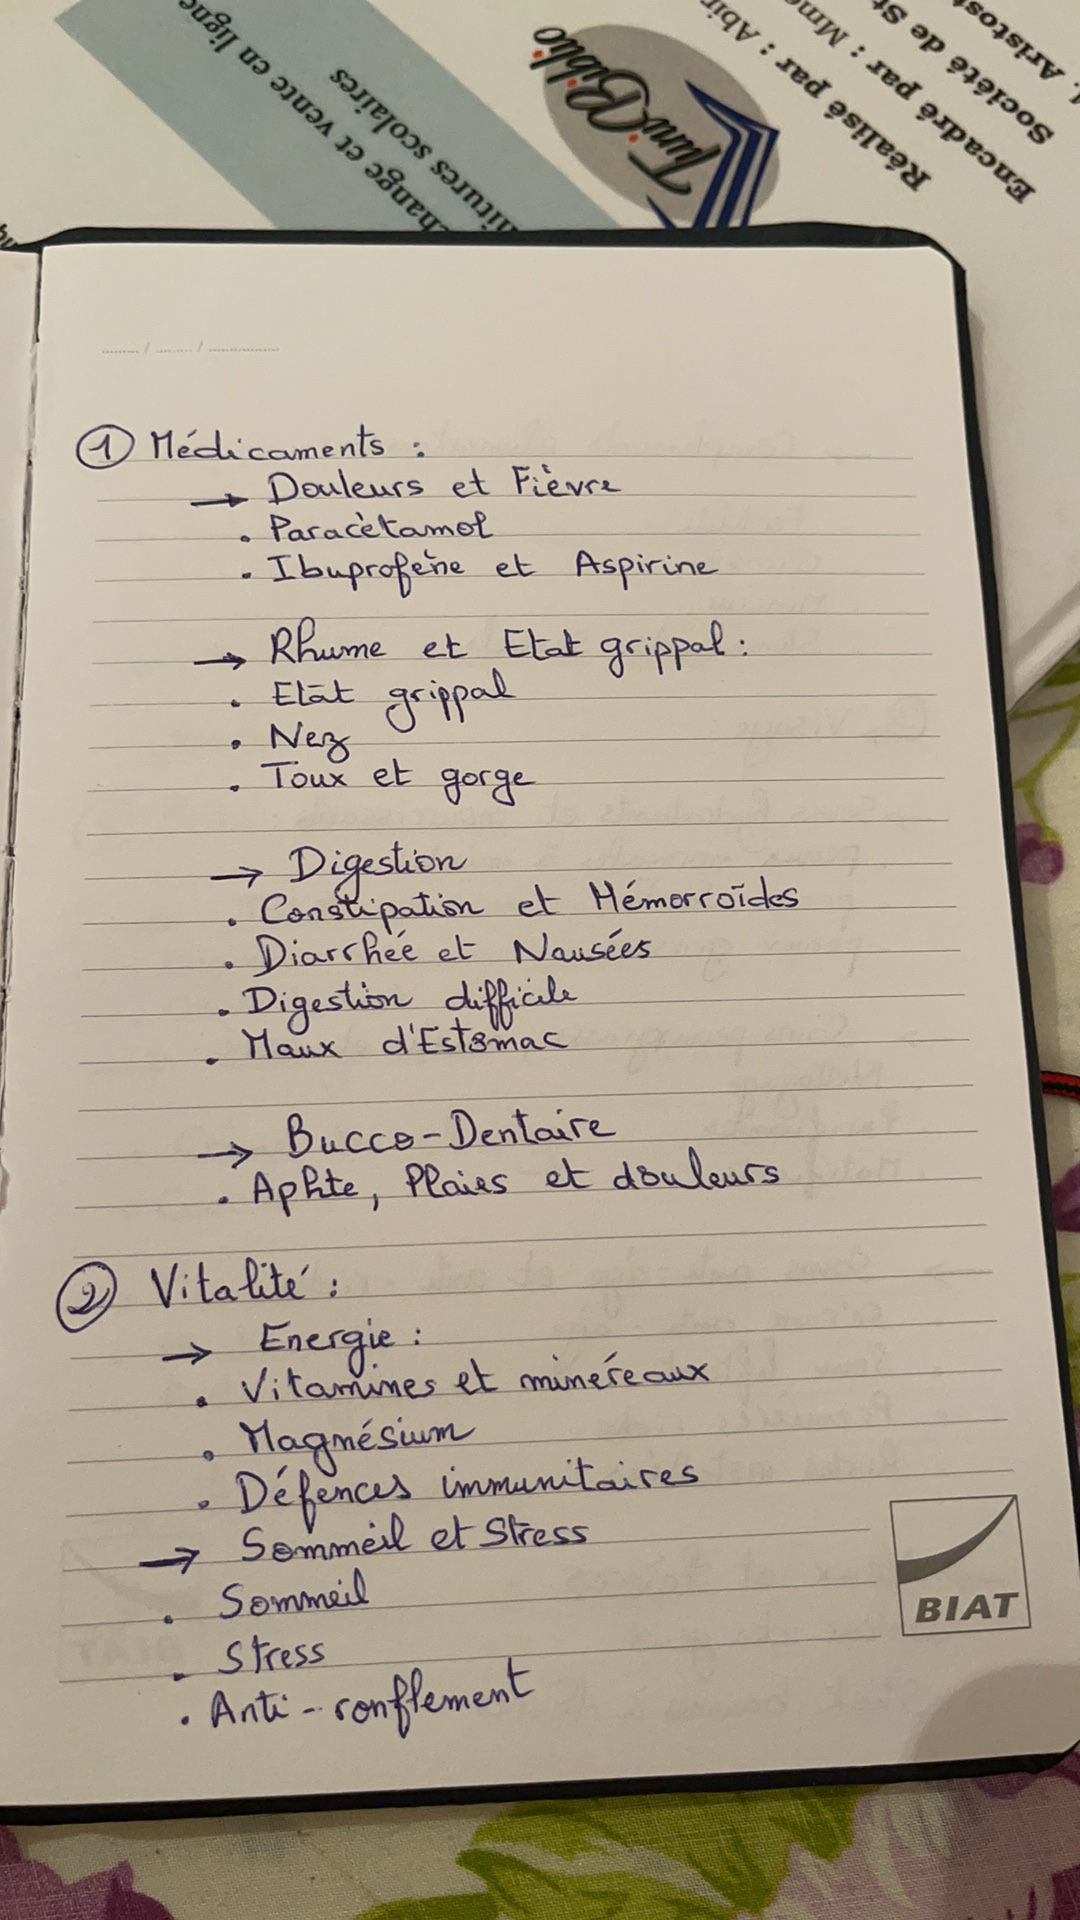 change et vente en ligne
nitures scolaires
Tuni Biblio
Réalisé par : Abir
Encadré par : Mme
Société de St
Aristost
① Médicaments :
→ Douleurs et Fièvre
. Paracètamol
. Ibuprofène et Aspirine
→ Rhume et Etat grippal :
. Etat grippal
. Nez
. Toux et gorge
→ Digestion
. Constipation et Hémorroïdes
. Diarrhée et Nausées
. Digestion difficile
. Maux d'Estomac
→ Bucco-Dentaire
. Aphte, Plaies et douleurs
② Vitalité :
→ Energie :
. Vitamines et minéreaux
. Magnésium
. Défences immunitaires
→ Sommeil et Stress
. Sommeil
. Stress
. Anti-ronflement
BIAT